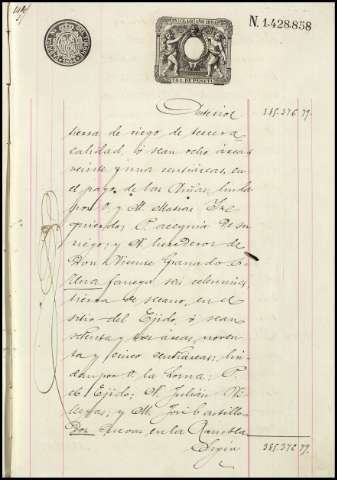 N. 1.428.858
Anterior 385.376.77.
tierra de riego de tercera
calidad, ó sean ocho áreas
veinte y una centiáreas, en
el pago de las Viñas, linda
por O. y M. Matías
P. acequia de su
riego; y N. herederos de
Don Vicente Granado
Una fanega seis celemines
tierra de secano, en el
sitio del Ejido, ó sean
ochenta y dos áreas, noven-
ta y cinco centiáreas; lin-
dan por O. la Loma; P.
el Ejido; N. Julián
y M. José Castillo
Dos en la Rambla
Sigue 385.376.77.